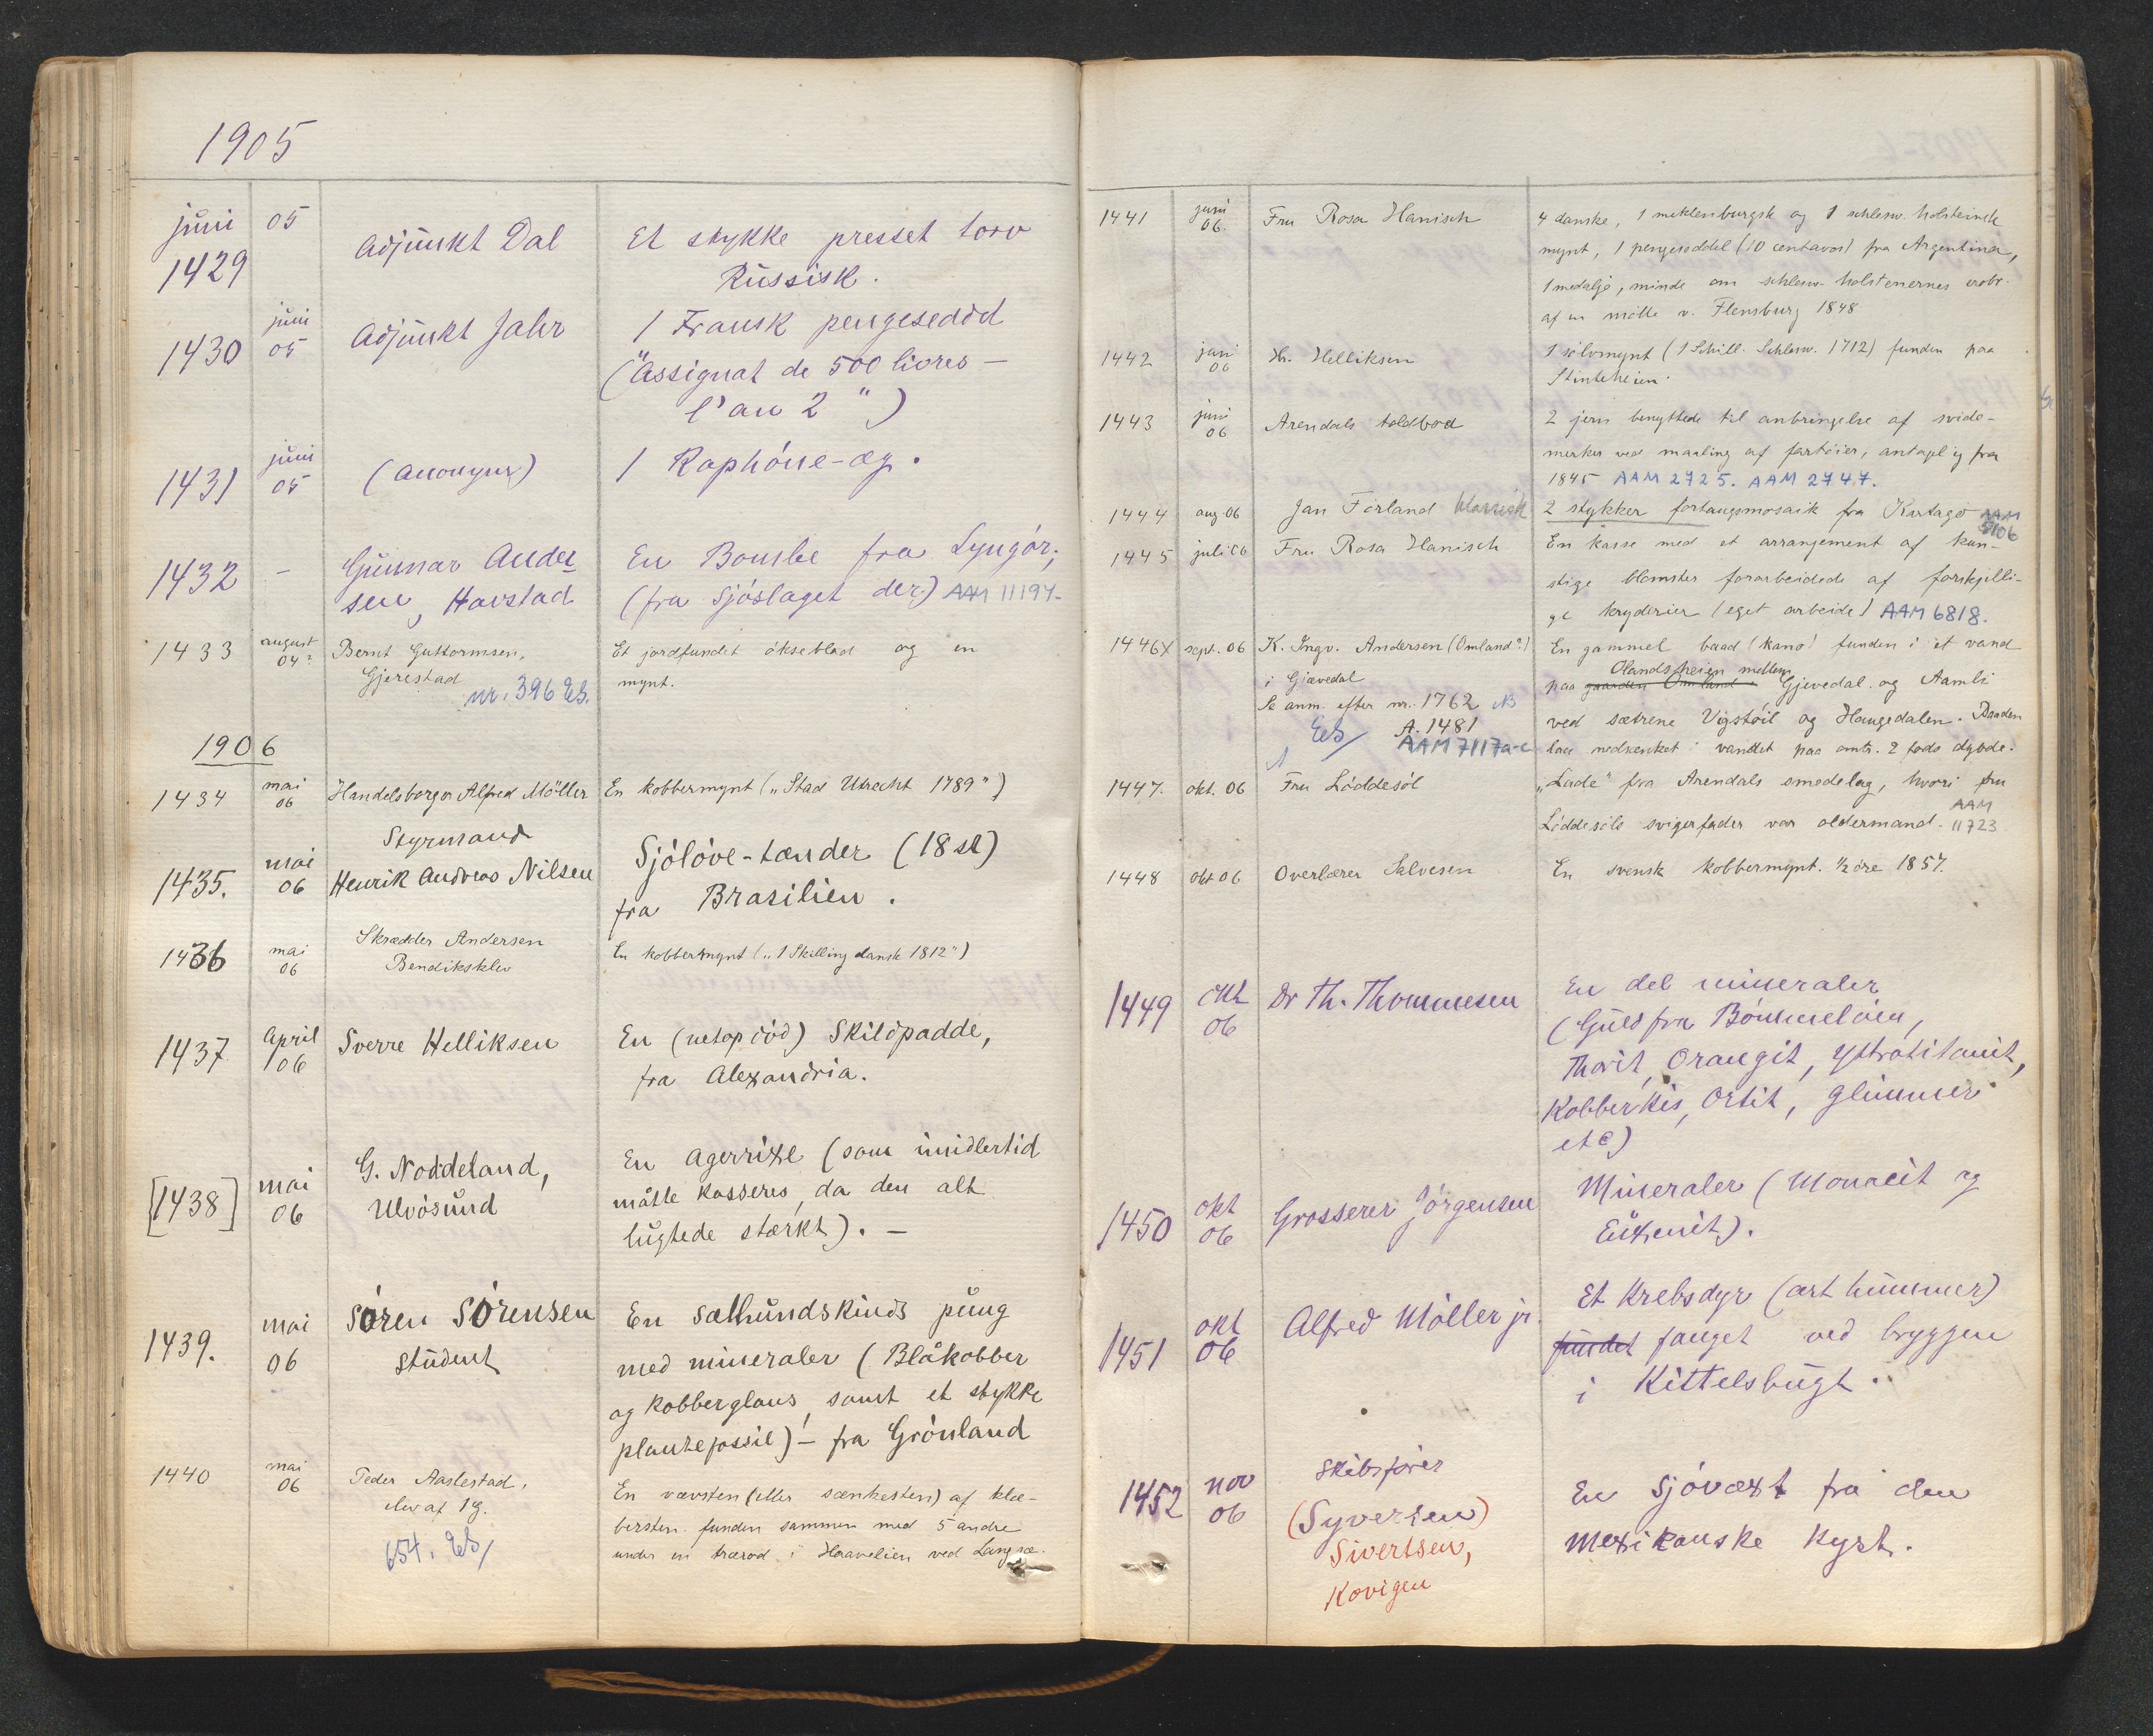 1905
juni 05
1429 Adjunkt Dal Et stykke presset torv
Russisk.
1430 juni 05 Adjunkt Jahr 1 Fransk pengeseddel
("Assignat de 500 livres –
l'an 2")
1431 juni 05 (Anonym) 1 Raphöne-æg.
1432 – Gunnar Ander
sen, Havstad En Bombe fra Lyngör,
(fra Sjöslaget der) AAM 11194
1433 august 04? Bernt Guttormsen, Et jordfundet ökseblad og en
Gjerestad mynt.
nr. 396 Es.
1906
1434 mai 06 Handelsborger Alfred Möller En kobbermynt („Stad Utrecht 1789")
Styrmand
1435. mai 06 Henrik Andreas Nilsen Sjölöve-tænder (18 st)
fra Brasilien.
1436 mai 06 Skrædder Andersen En kobbermynt („1 Skilling dansk 1812")
Bendiksklev
1437 April 06 Sverre Helliksen En (netop död) Skildpadde,
fra Alexandria.
[1438] mai 06 G. Noddeland, En agerrixe (som imidlertid
Ulvösund måtte kasseres, da den alt
lugtede stærkt). –
1439. mai 06 Sören Sörensen En sælhundskinds pung
student med mineraler (Blåkobber
og kobberglans, samt et stykke
plantefossil) – fra Grönland
1440 mai 06 Peder Aaslestad, En vævsten (eller sænkesten) af klæ-
elev af 1g. bersten funden sammen med 5 andre
654. Es/ under en trærod i Haavelien ved Langsæ.
1441 juni 06. Fru Rosa Hanisch 4 danske, 1 meklenburgsk og 1 schlesw. holsteinsk
mynt, 1 pengeseddel (10 centavos) fra Argentina,
1 medalje, minde om schlesw- holstenernes erobr.
af en mölle v. Flensburg 1848
1442 juni 06 Hr. Helliksen 1 sölvmynt (1 Schill. Schlesw. 1712) funden paa
Stinteheien.
1443 juni 06 Arendals toldbod 2 jern benyttede til anbringelse af svide-
merker ved maaling af fartöier, antagelig fra
1845 AAM 2725. AAM 2747.
1444 aug 06 Jan Förland klassisk 2 stykker fortaugsmosaik fra Kartago AAM 5106
1445 juli 06 Fru Rosa Hanisch En kasse med et arrangement af kun-
stige blomster forarbeidede af forskjelli-
ge kryderier (eget arbeide) AAM 6818.
1446X sept. 06 K. Ingv. Andersen (Omland?) En gammel baad (kano) funden i et vand
Olandsheien mellem
i Gjævedal paa gaarden Omland i Gjevedal og Aamli
Se anm. efter nr. 1762 NB ved sætrene Vigstöil og Haugedalen. Baaden
Es/ A. 1481
AAM 7117a-c laa nedsænket i vandet paa omtr. 2 fods dybde.
1447. okt. 06 Fru Löddesöl „Lade" fra Arendals smedelag, hvori fru
Löddesöls svigerfader var oldermand. AAM 11723
1448 okt 06 Overlærer Salvesen En svensk kobbermynt. ½ öre 1857.
1449 okt 06 Dr Th. Thommesen En del mineraler
(Guld fra Bömmelöen,
Thorit, Orangit, Yttrotitanit,
Kobberkis, Ortit, Glimmer
etc)
1450 okt 06 Grosserer Jörgensen Mineraler (Monacit og
Euxenit).
1451 okt 06 Alfred Möller jr. Et Krebsdyr (art hummer)
fundet fanget ved bryggen
i Kittelsbugt.
1452 nov 06 Skibsförer En Sjövæxt fra den
(Syversen) mexikanske Kyst.
Sivertsen,
Kovigen